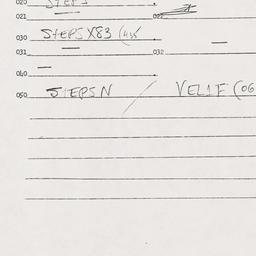 020 STEPS
021 022
030 STEPS X83
031 032
040
050 STEPS N / VEL1F (06